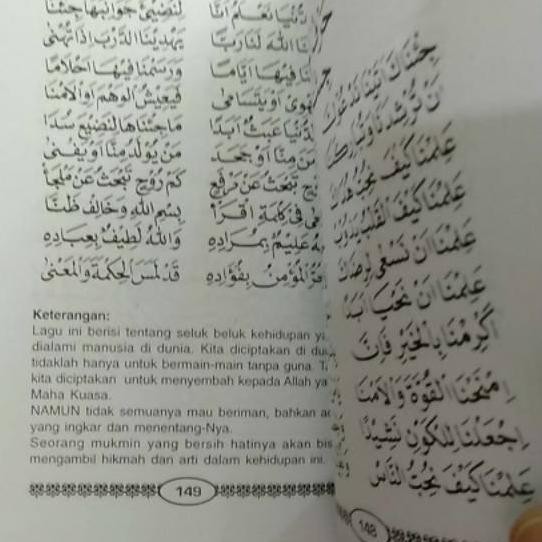 دُنْيَا نَعْلَمُ أَنَّا لِنُضِيْئَ جَوَانِبَهَا جِئْنَا
اللهُ لَنَا رَبَّا يَهْدِيْنَا الدَّرْبَ إِذَا تُهْنَا
فِيْهَا اَيَّامَا وَرَسَمْنَا فِيْهَا اَحْلَامَا
اَوْ يَتَسَامَى فَيَعِيْشُ لَوَهْمِ اَوْ اَلَمْنَا
عَبَثٌ اَبَدًا مَاجِئْنَاهَا لِنَضِيْعَ سُدَا
مِنَّا اَوْ جَحَدَ مَنْ يُوْلَدُ مِنَّا اَوْ يَفْنَى
تَبْحَثُ عَنْ كَمْ رُوْحٍ تَبْحَثُ عَنْ مَلْجَأْ
فِيْ كَلِمَةِ اقْرَأْ بِسْمِ اللهِ وَخَالِفْ ظَنَّا
عَلِيْمٌ بِمُرَادِهِ وَاللهُ لَطِيْفٌ بِعِبَادِهِ
الْمُؤْمِنُ بِفُؤَادِهِ قَدْ لَمَسَ الْحِكْمَةَ وَالْمَعْنَى
Keterangan:
Lagu ini berisi tentang seluk beluk kehidupan
dialami manusia di dunia. Kita diciptakan di
tidaklah hanya untuk bermain-main tanpa guna.
kita diciptakan untuk menyembah kepada Allah
Maha Kuasa.
NAMUN tidak semuanya mau beriman, bahkan
yang ingkar dan menentang-Nya.
Seorang mukmin yang bersih hatinya akan
mengambil hikmah dan arti dalam kehidupan ini.
149
جِئْنَاكَ اَتَيْنَا نَدْعُوْكَ
عَلِّمْنَا كَيْفَ
عَلِّمْنَا كَيْفَ الْقَلْبُ
عَلِّمْنَا اَنْ نَسْعَى لِرِضَاكَ
عَلِّمْنَا اَنْ نَحْيَا اَبَدًا
اَكْرِمْنَا بِالْخَيْرِ فَاِنَّ
اِمْنَحْنَا الْقُوَّةَ وَالْاَمْنَ
اِجْعَلْنَا لِلْكَوْنِ نَشِيْدًا
عَلِّمْنَا كَيْفَ نُحِبُّ النَّاسَ
148